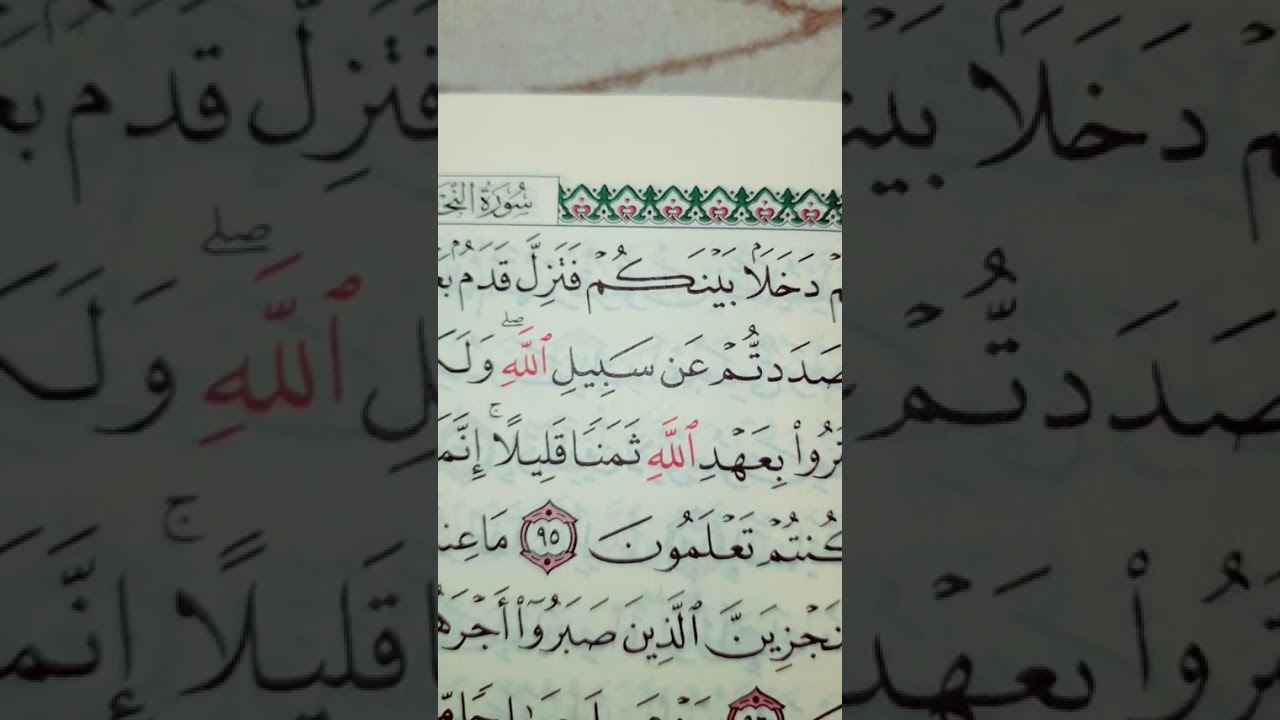 سُورَةُ النَّحْ
دَخَلَۢا بَيْنَكُمْ فَتَزِلَّ قَدَمُۢ بَعْ
صَدَدتُّمْ عَن سَبِيلِ ٱللَّهِ ۖ وَلَكُ
تَرُوا۟ بِعَهْدِ ٱللَّهِ ثَمَنًا قَلِيلًا ۚ إِنَّمَا
كُنتُمْ تَعْلَمُونَ ٩٥ مَا عِند
نَجْزِيَنَّ ٱلَّذِينَ صَبَرُوٓا۟ أَجْرَهُ